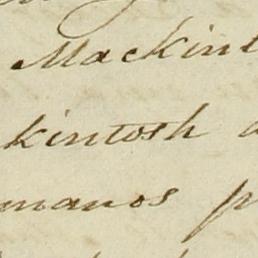 Mackint
kintosh a
manos p